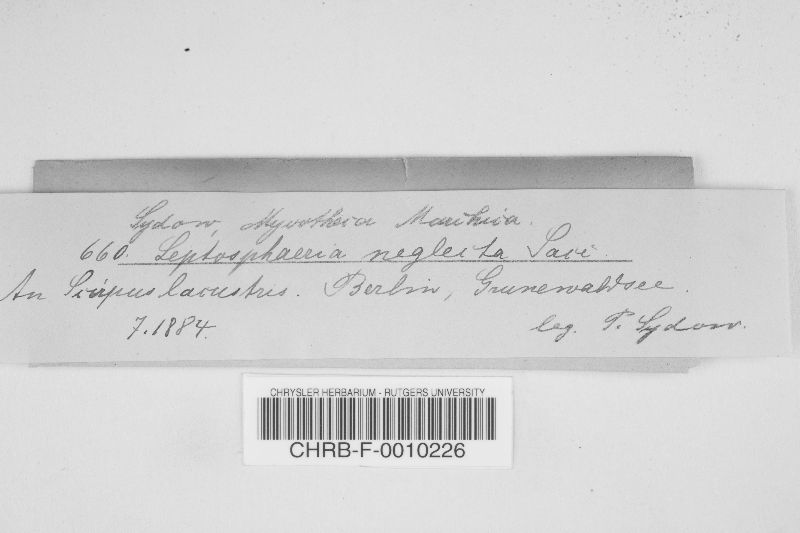 Sydow, Mycotheca Marchica.
660. Leptosphaeria neglecta Sacc.
An Scirpus lacustris. Berlin, Grunewaldsee.
7.1884. leg. P. Sydow.
CHRYSLER HERBARIUM - RUTGERS UNIVERSITY
CHRB-F-0010226